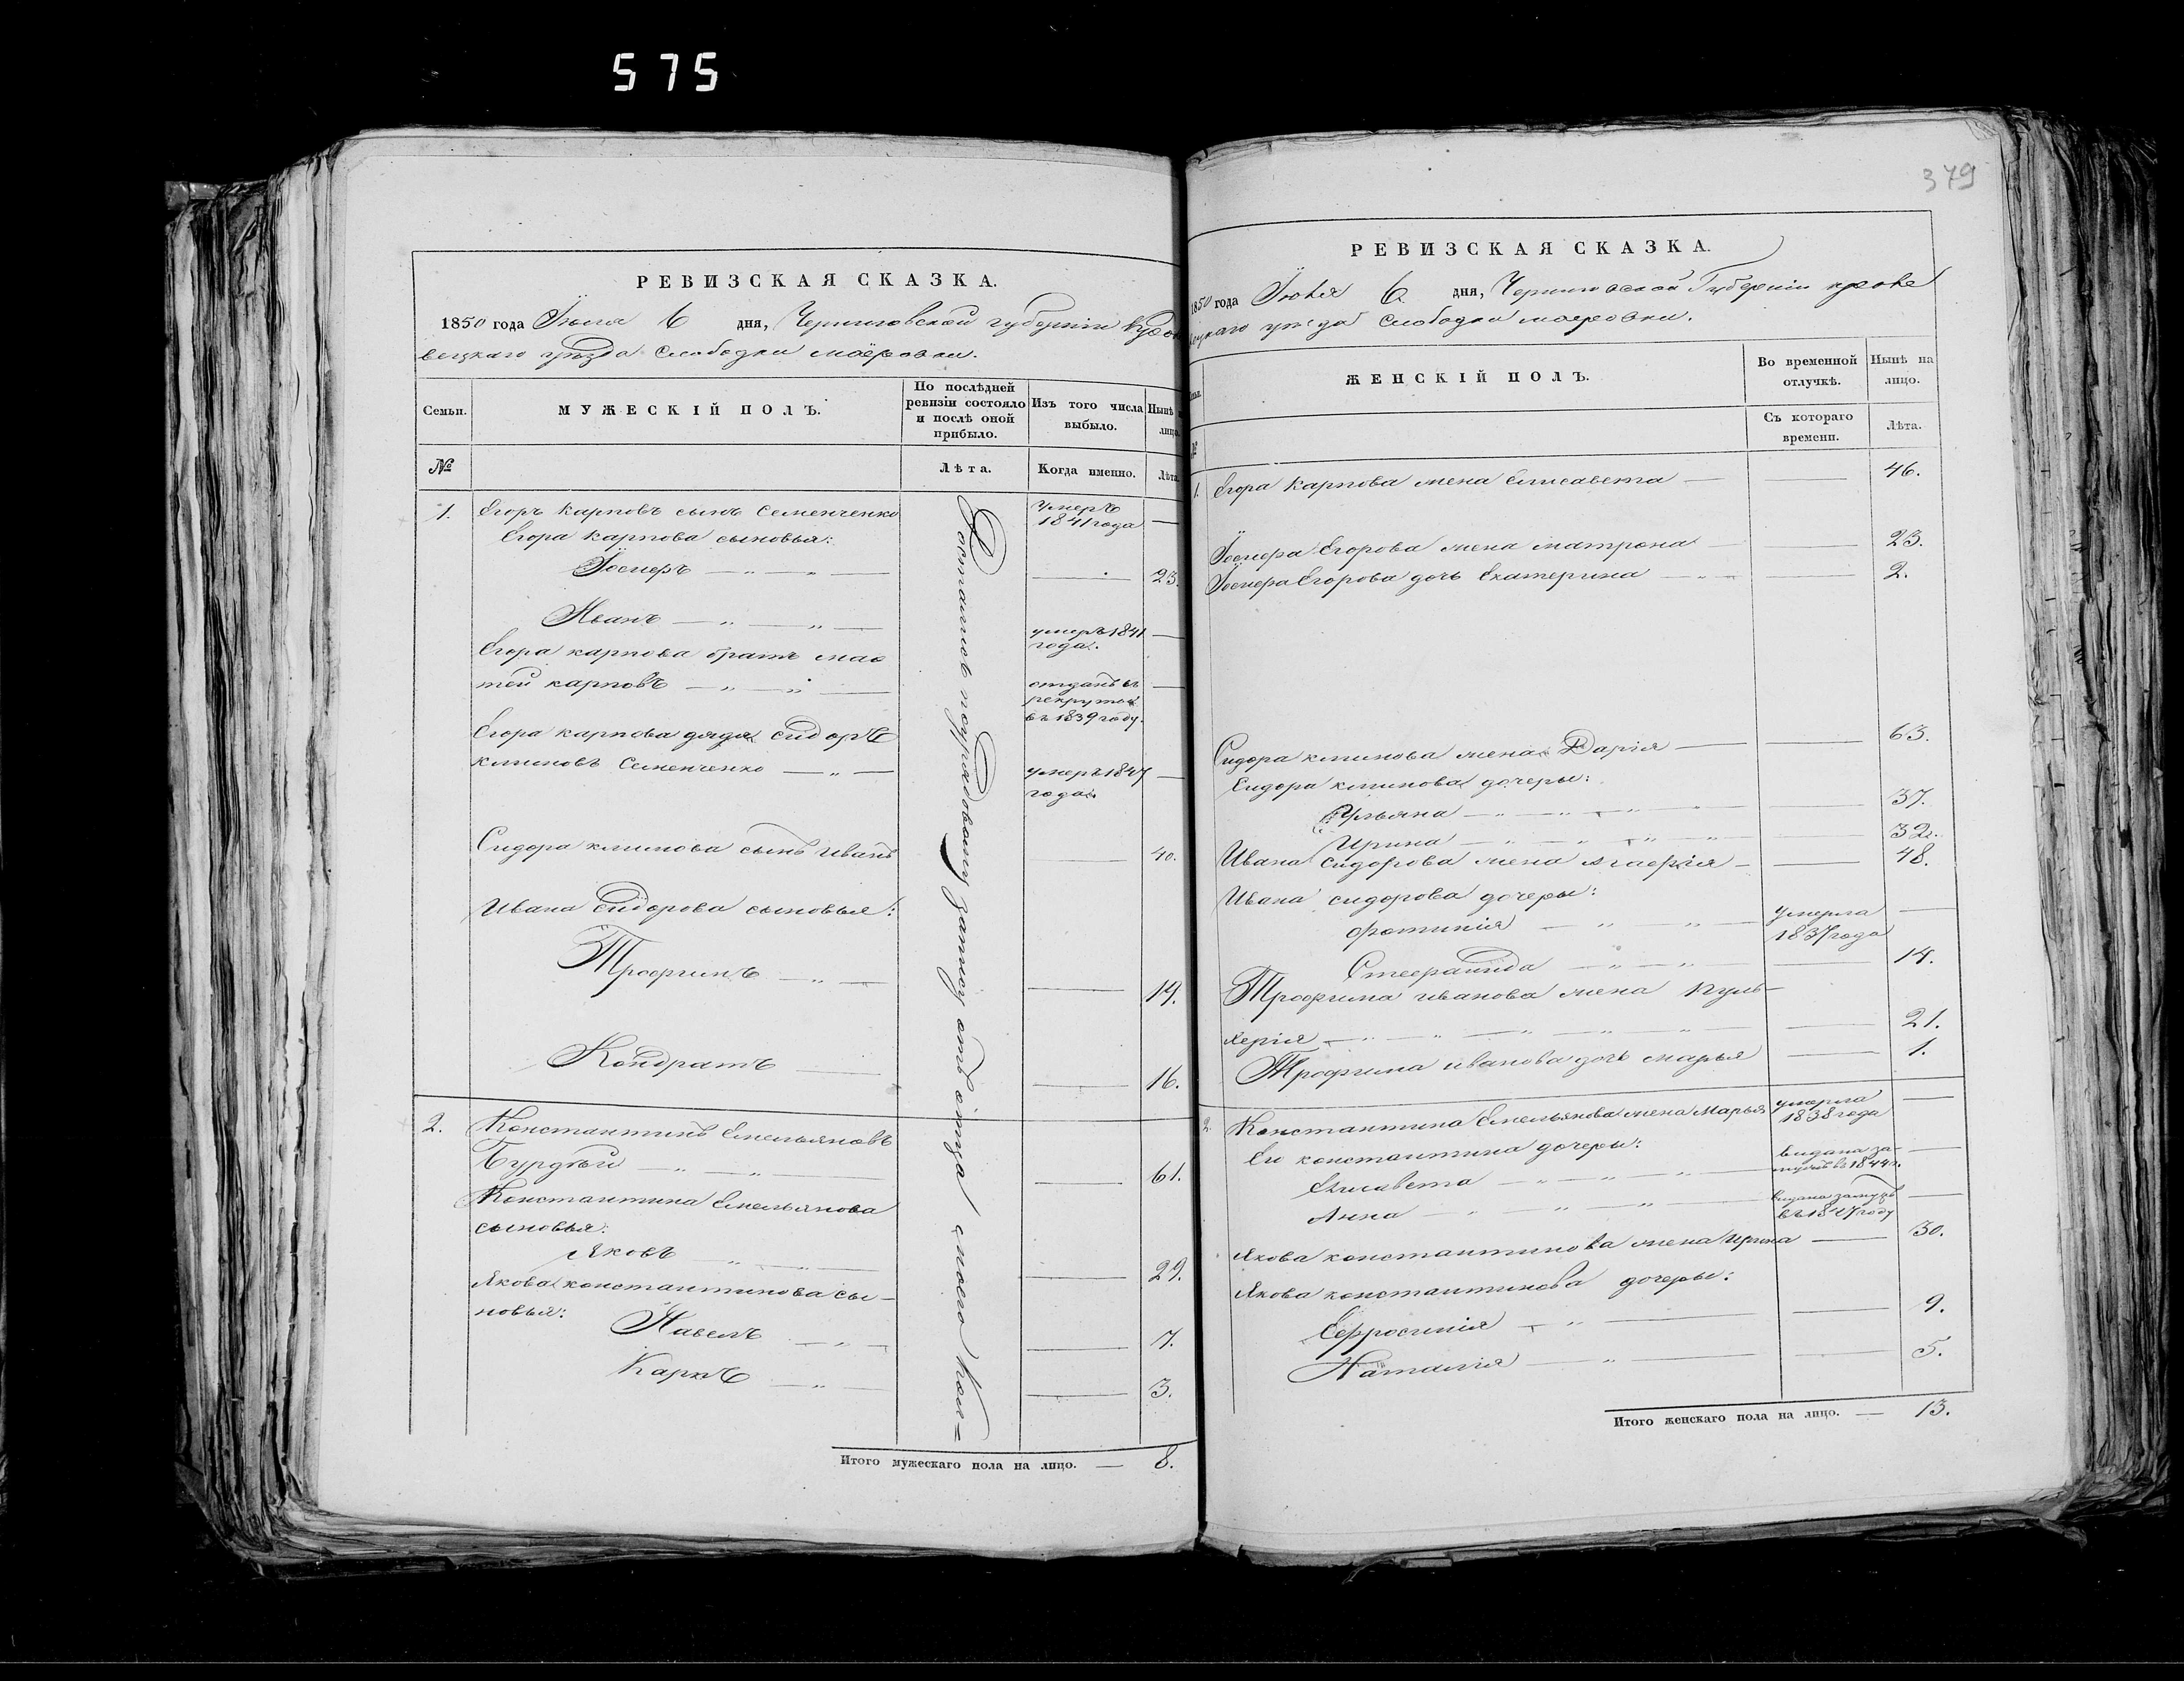 575
379
РЕВИЗСКАЯ СКАЗКА.
1850 года Іюля 6 дня, Черниговской губерніи
вецкаго уѣзда Слободки
Семьи.
МУЖЕСКІЙ ПОЛЪ.
По послѣдней ревизіи состояло и послѣ оной прибыло.
Изъ того числа выбыло.
Нынѣ
лицо.
№
Лѣта.
Когда именно.
Лѣта
1. Егоръ Карповъ сынъ Семенченко умеръ 1841 года —
Егора Карпова сыновья:
23.
Иванъ — „ — „ — умеръ 1841 года. —
Егора карпова братъ
тей карповъ — „ — „ — отданъ въ рекруты въ 1839 году. —
Егора карпова дядя Сидоръ
климовъ Семенченко — „ — умеръ 1847 года. —
Сидора климова сынъ Иванъ — 40.
Ивана Сидорова сыновья:
Трофимъ — „ — — 19.
Кондратъ — — 16.
2. Константинъ Емельяновъ
— „ — „ — — 61.
Константина Емельянова
сыновья:
Яковъ — „ — „ — — 29.
Якова константинова сы-
новья:
Павелъ — „ — — 7.
Карпъ — „ — — 3.
Итого мужескаго пола на лицо. — 8.
РЕВИЗСКАЯ СКАЗКА.
1850 года Іюля 6 дня, Черниговской Губерніи
вецкаго уѣзда Слободки
ЖЕНСКІЙ ПОЛЪ.
Во временной отлучкѣ.
Нынѣ на лицо.
№
Съ котораго времени.
Лѣта.
1. Егора Карпова жена Елисавета — — 46.
Егорова жена матрона — — 23.
Егорова дочь Екатерина — „ — — 2.
Сидора климова жена Дарія — — 63.
Сидора климова дочеры:
Ульяна — „ — „ — „ — „ — 37.
Ирина — „ — „ — „ — „ — 32.
Ивана Сидорова жена Агафія — — 48.
Ивана сидорова дочеры:
Фотинія — „ — „ — умерла 1837 года —
Стефанида — „ — „ — — 14.
Трофима иванова жена Пуль-
херія — „ — „ — „ — „ — — 21.
Трофима иванова дочь марья — 1.
2. Константина Емельянова жена Марья умерла 1838 года —
Его константина дочеры:
Елисавета — „ — „ — „ — видана замужъ въ 1844 г. —
Анна — „ — „ — „ — видана замужъ въ 1847 году —
Якова константинова жена Ирина — 30.
Якова константинова дочеры:
Ефросинія — „ — — 9.
Наталія — „ — — 5.
Итого женскаго пола на лицо. — 13.